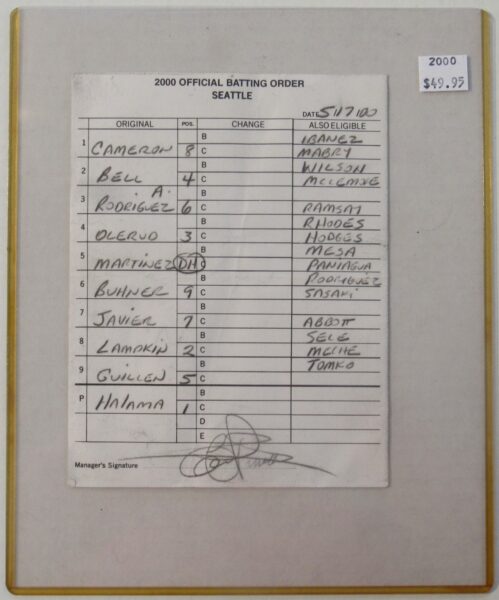 2000
$49.95
2000 OFFICIAL BATTING ORDER
SEATTLE
DATE 5/17/00
ORIGINAL POS. CHANGE ALSO ELIGIBLE
B IBANEZ
1 CAMERON 8 C MABRY
B WILSON
2 BELL 4 C MCLEMORE
B
3 A. RODRIGUEZ 6 C RAMSAY
B RHODES
4 OLERUD 3 C HODGES
B MESA
5 MARTINEZ DH C PANIAGUA
B RODRIGUEZ
6 BUHNER 9 C SASAKI
B
7 JAVIER 7 C ABBOTT
B SELE
8 LAMPKIN 2 C MECHE
B TOMKO
9 GUILLEN 5 C
B
P HALAMA 1 C
D
E
Manager's Signature